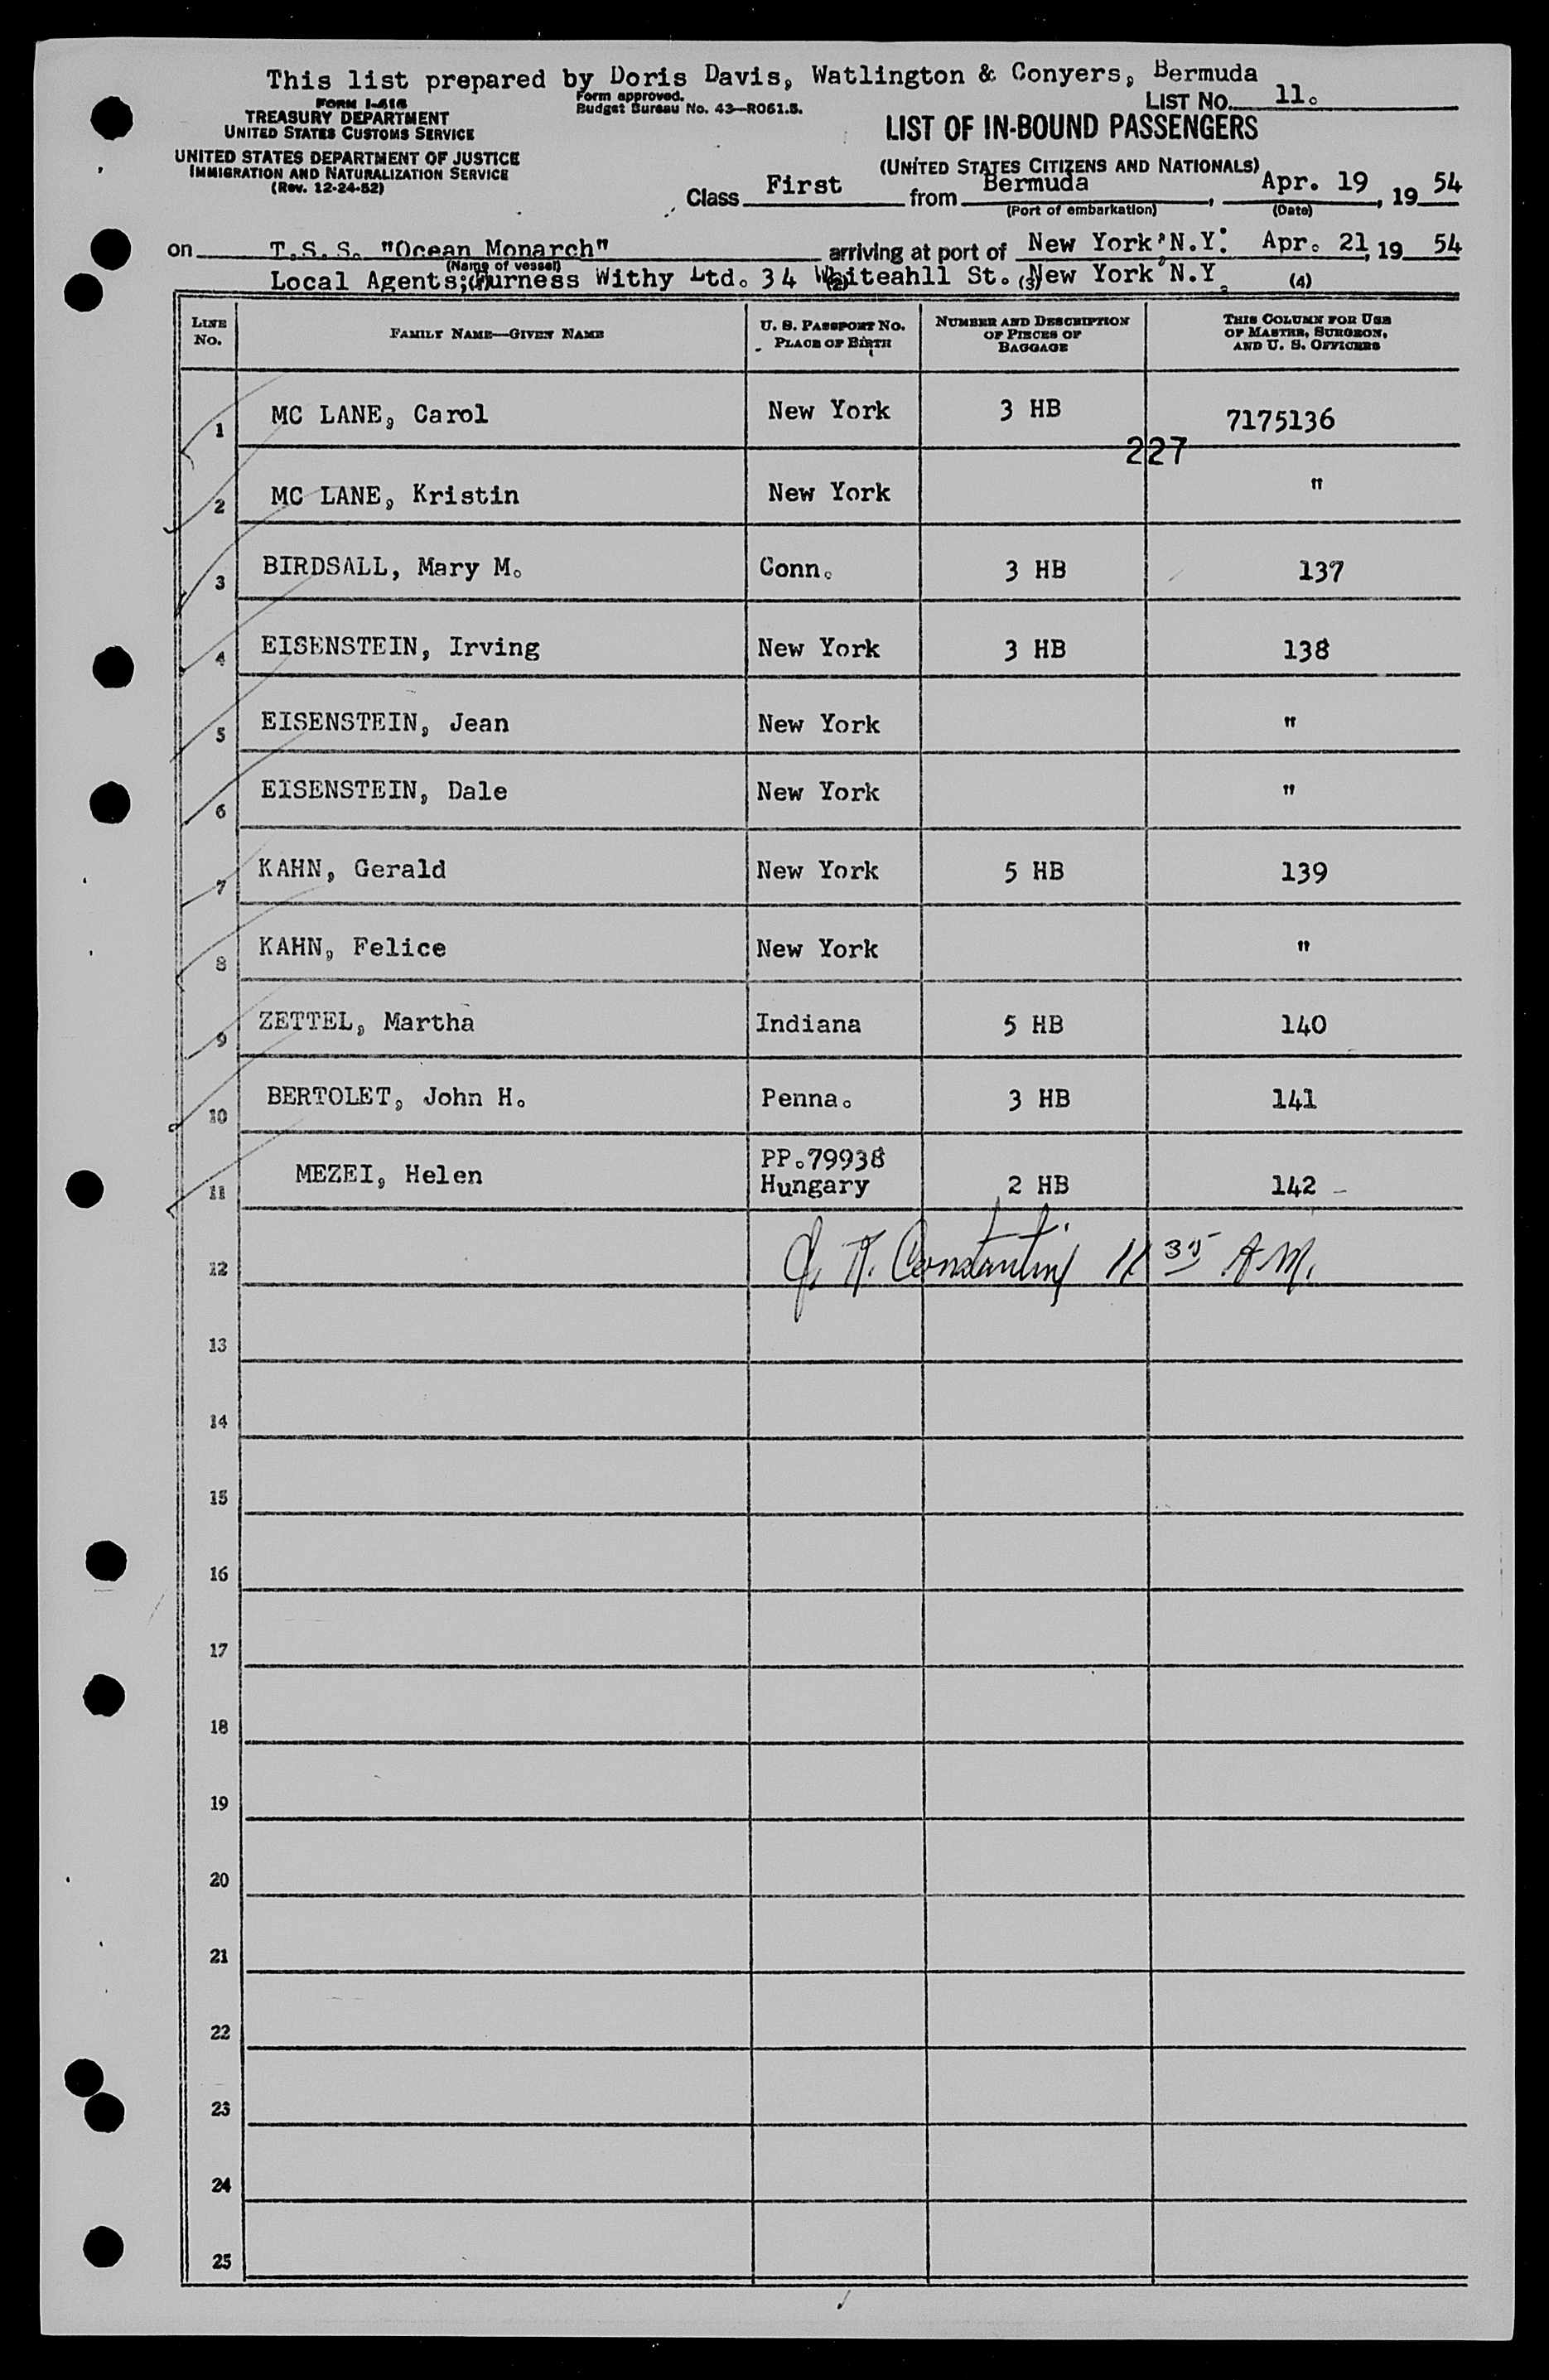 This list prepared by Doris Davis, Watlington & Conyers, Bermuda
FORM I-416
TREASURY DEPARTMENT
UNITED STATES CUSTOMS SERVICE
UNITED STATES DEPARTMENT OF JUSTICE
IMMIGRATION AND NATURALIZATION SERVICE
(Rev. 12-24-52)
Form approved.
Budget Bureau No. 43—R061.5.
LIST NO. 11.
LIST OF IN-BOUND PASSENGERS
(UNITED STATES CITIZENS AND NATIONALS)
Class First from Bermuda, Apr. 19, 19 54
(Port of embarkation) (Date)
on T.S.S. "Ocean Monarch" arriving at port of New York, N.Y. Apr. 21, 19 54
(Name of vessel)
Local Agents; Furness Withy Ltd. 34 Whiteahll St. New York N.Y.
(1) (2) (3) (4)
LINE No. FAMILY NAME—GIVEN NAME U. S. PASSPORT No. PLACE OF BIRTH NUMBER AND DESCRIPTION OF PIECES OF BAGGAGE THIS COLUMN FOR USE OF MASTER, SURGEON, AND U. S. OFFICERS
1 MC LANE, Carol New York 3 HB 7175136
227
2 MC LANE, Kristin New York "
3 BIRDSALL, Mary M. Conn. 3 HB 137
4 EISENSTEIN, Irving New York 3 HB 138
5 EISENSTEIN, Jean New York "
6 EISENSTEIN, Dale New York "
7 KAHN, Gerald New York 5 HB 139
8 KAHN, Felice New York "
9 ZETTEL, Martha Indiana 5 HB 140
10 BERTOLET, John H. Penna. 3 HB 141
11 MEZEI, Helen PP.79938 Hungary 2 HB 142
12 Constantin 11 35 A.M.
13
14
15
16
17
18
19
20
21
22
23
24
25